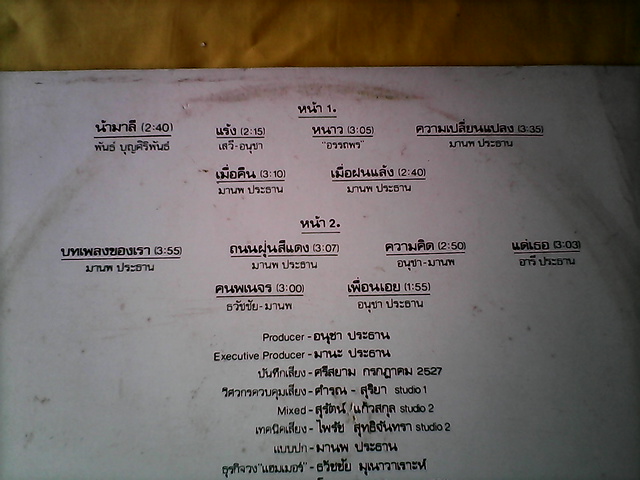 หน้า 1.
น้ามาลี (2:40) แร้ง (2:15) หนาว (3:05) ความเปลี่ยนแปลง (3:35)
พันธ์ บุญศิริพันธ์ เสวี-อนุชา "อรรถพร" มานพ ประธาน
เมื่อคืน (3:10) เมื่อฝนแล้ง (2:40)
มานพ ประธาน มานพ ประธาน
หน้า 2.
บทเพลงของเรา (3:55) ถนนฝุ่นสีแดง (3:07) ความคิด (2:50) แด่เธอ (3:03)
มานพ ประธาน มานพ ประธาน อนุชา-มานพ อารี ประธาน
คนพเนจร (3:00) เพื่อนเอย (1:55)
ธวัชชัย-มานพ อนุชา ประธาน
Producer - อนุชา ประธาน
Executive Producer - มานะ ประธาน
บันทึกเสียง - ศรีสยาม กรกฎาคม 2527
วิศวกรควบคุมเสียง - คำรณ - สุริยา studio 1
Mixed - สุรัตน์ แก้วสกุล studio 2
เทคนิคเสียง - ไพรัช สุทธิจันทรา studio 2
แบบปก - มานพ ประธาน
ธุรกิจวง "แฮมเมอร์" - ธวัชชัย มุเนาวาเราะห์